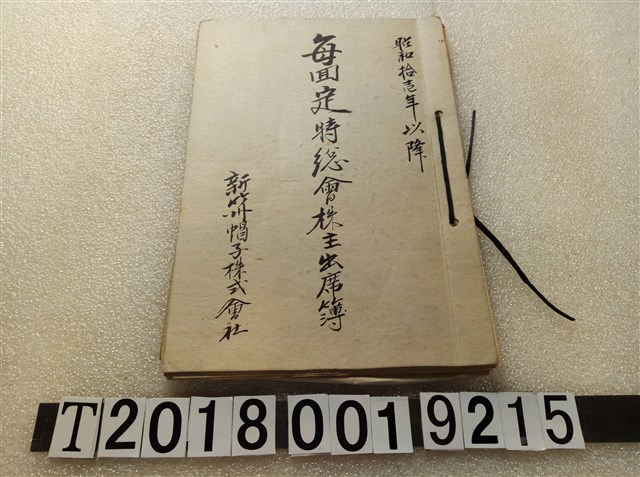 昭和拾壱年以降
每回定時総會株主出席簿
新竹州帽子株式會社
T20180019215